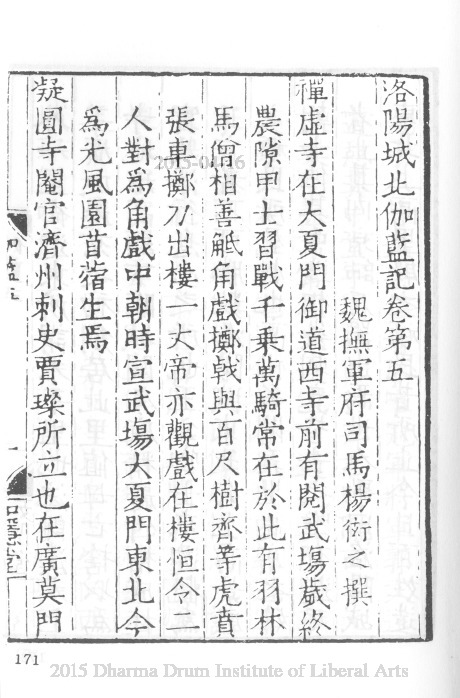 洛陽城北伽藍記卷第五
魏撫軍府司馬楊衒之撰
禪虛寺在大夏門御道西寺前有閱武塲歲終
農隙甲士習戰千乘萬騎常在於此有羽林
馬僧相善觝角戲擲戟與百尺樹齊等虎賁
張車擲刀出樓一丈帝亦觀戲在樓恒令二
人對爲角戲中朝時宣武塲大夏門東北今
爲光風園苜蓿生焉
凝圓寺閹官濟州刺史賈璨所立也在廣莫門
171
2015-04-16
2015 Dharma Drum Institute of Liberal Arts